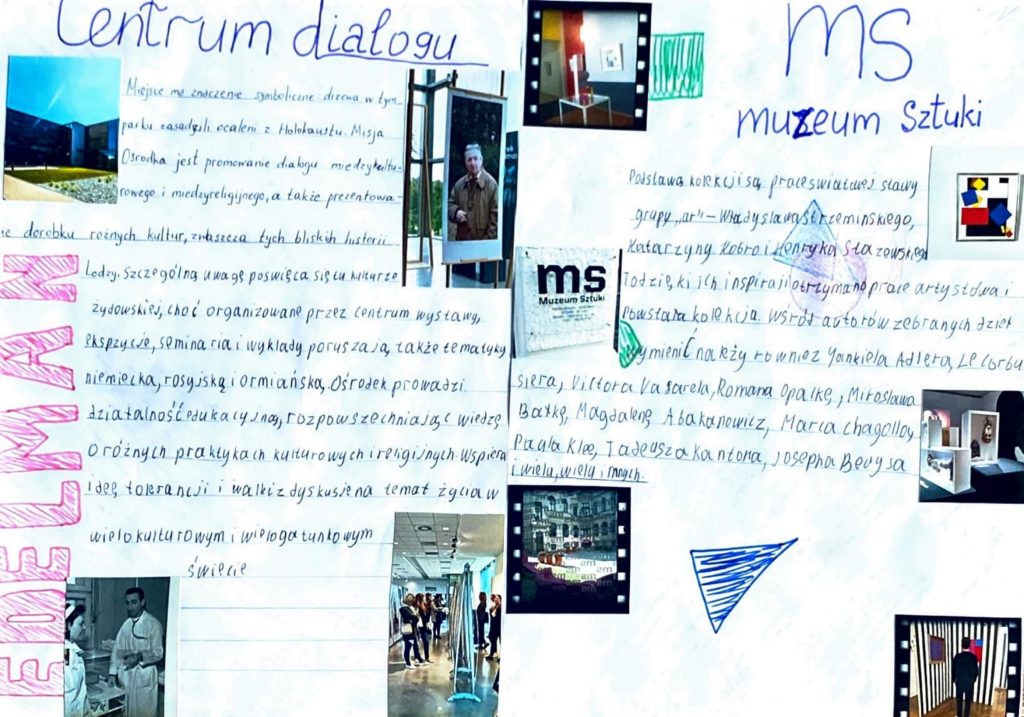 Centrum dialogu
Miejsce ma znaczenie symboliczne drzewa w tym
parku zasadzili ocaleni z Holokaustu. Misja
Ośrodka jest promowanie dialogu miedzykultu-
rowego i miedzyreligijnego, a także prezentowa-
ie dorobku rożnych kultur, zwłaszcza tych bliskich historii
Lodzy. Szczególną uwagę poswięca się tu kulturze
zydowskiej, choć organizowane przez centrum wystawy,
ekspzycje, seminaria i wyklady poruszają, także tematykę
niemiecką, rosyjską i ormiańską. Ośrodek prowadzi
działalność edukacyjną, rozpowszechniając wiedzę
O różnych praktykach kulturowych i religijnych. Wspiera
ideę tolerancji i walki z dyskusje na temat życia w
wielokulturowym i wielogatunkowym
świecie
EDELMAN
ms
muzeum Sztuki
Podstawą kolekcji są prace światowej sławy
grupy „ar" – Władysława Strzeminskiego,
Katarzyny Kobro i Henryka Stazewskiego
Todzięki ich inspiraji otrzymano prace artystówa i
Powstała kolekcja. Wsród autorów zebranych dzieł
wymienić należy rowniez Yankiela Adlera, Le Corbu
siera, Victora Vasarela, Romana Opalkę, Mirosława
Bałkę, Magdalenę Abakanowicz, Marca Chagallay
Paula Klee, Tadeusza Kantora, Josepha Beuysa
i wielu, wielu i innych.
ms
Muzeum Sztuki